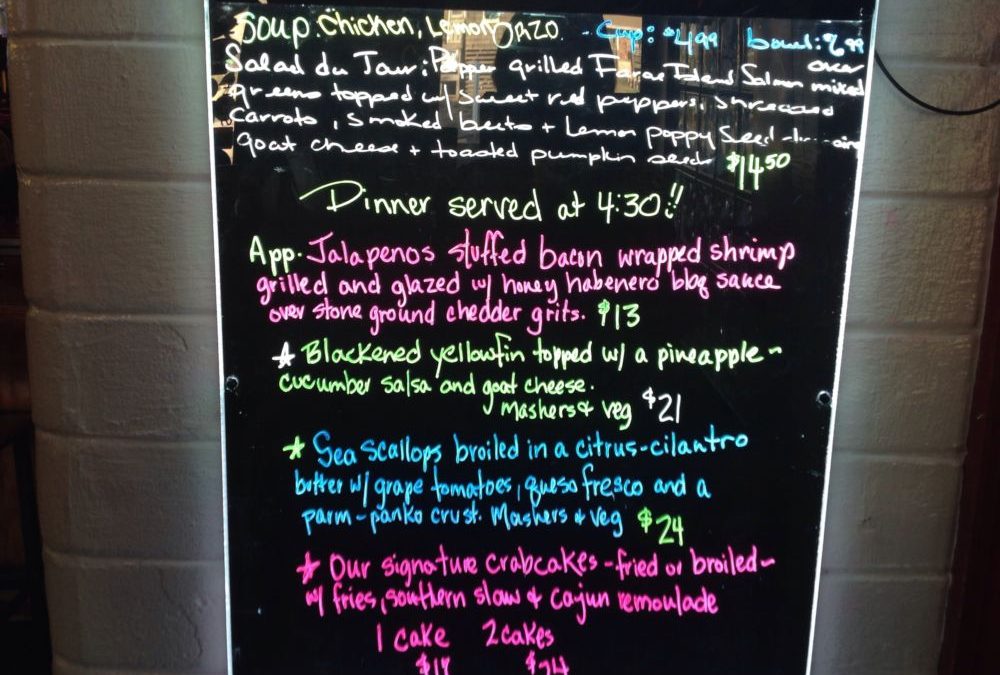 Soup. Chicken, Lemon Orzo. - Cup: $4.99 bowl: 6.99
Salad du Jour: Pepper grilled Faroe Island Salmon over mixed
greens topped w/ sweet red peppers, shredded
carrots, smoked beets + Lemon poppy Seed
goat cheese + toasted pumpkin seeds $14.50
Dinner served at 4:30!!
App. Jalapenos stuffed bacon wrapped shrimp
grilled and glazed w/ honey habenero bbq sauce
over stone ground chedder grits. $13
★ Blackened yellowfin topped w/ a pineapple ~
cucumber salsa and goat cheese.
Mashers & veg $21
★ Sea scallops broiled in a citrus-cilantro
butter w/ grape tomatoes, queso fresco and a
parm-panko crust. Mashers & veg $24
★ Our signature crabcakes - fried or broiled ~
w/ fries, southern slaw & cajun remoulade
1 cake 2 cakes
$24